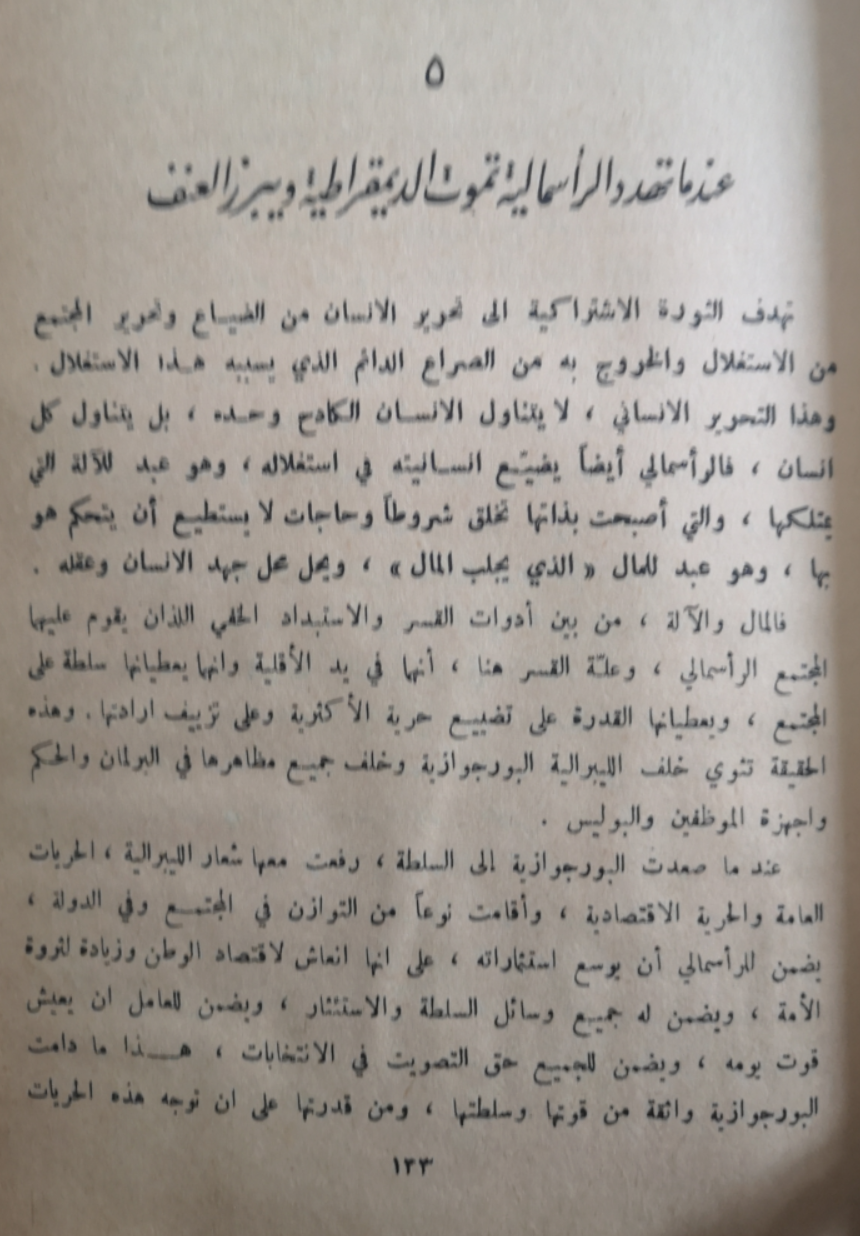 ٥
عندما تهدد الرأسمالية تموت الديمقراطية ويبرز العنف
تهدف الثورة الاشتراكية الى تحرير الانسان من الضياع وتحرير المجتمع
من الاستغلال والخروج به من الصراع الدائم الذي يسببه هذا الاستغلال .
وهذا التحرير الانساني ، لا يتناول الانسان الكادح وحده ، بل يتناول كل
انسان ، فالرأسمالي أيضاً يضيّع انسانيته في استغلاله ، وهو عبد للآلة التي
يمتلكها ، والتي أصبحت بذاتها تخلق شروطاً وحاجات لا يستطيع أن يتحكم هو
بها ، وهو عبد للمال « الذي يجلب المال » ، ويحل محل جهد الانسان وعقله .
فالمال والآلة ، من بين أدوات القسر والاستبداد الخفي اللذان يقوم عليها
المجتمع الرأسمالي ، وعلّة القسر هنا ، أنها في يد الأقلية وانها يعطيانها سلطة على
المجتمع ، ويعطيانها القدرة على تضييع حرية الأكثرية وعلى تزييف ارادتها . وهذه
الحقيقة تثوي خلف الليبرالية البورجوازية وخلف جميع مظاهرها في البرلمان والحكم
واجهزة الموظفين والبوليس .
عند ما صعدت البورجوازية إلى السلطة ، رفعت معها شعار الليبرالية ، الحريات
العامة والحرية الاقتصادية ، وأقامت نوعاً من التوازن في المجتمع وفي الدولة ،
يضمن للرأسمالي أن يوسع استثماراته ، على انها انعاش لاقتصاد الوطن وزيادة لثروة
الأمة ، ويضمن له جميع وسائل السلطة والاستئثار ، ويضمن للعامل ان يعيش
قوت يومه ، ويضمن للجميع حق التصويت في الانتخابات ، هذا ما دامت
البورجوازية واثقة من قوتها وسلطتها ، ومن قدرتها على ان توجه هذه الحريات
١٣٣